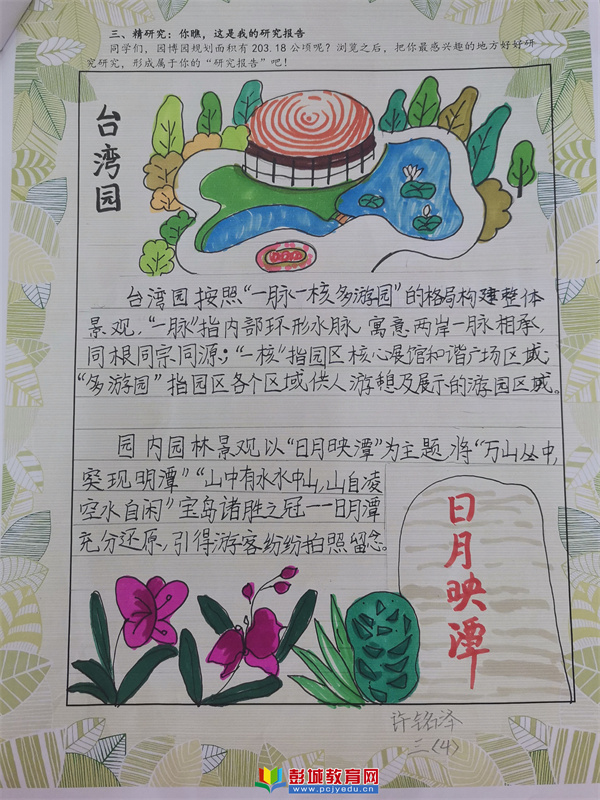 三、精研究：你瞧，这是我的研究报告
同学们，园博园规划面积有 203.18 公顷呢？浏览之后，把你最感兴趣的地方好好研
究研究，形成属于你的“研究报告”吧！
台湾园
台湾园按照“一脉一核多游园”的格局构建整体
景观，“一脉”指内部环形水脉，寓意两岸一脉相承，
同根同宗同源；“一核”指园区核心展馆和谐广场区域；
“多游园”指园区各个区域，供人游憩及展示的游园区域。
园内园林景观以“日月映潭”为主题，将“万山丛中，
突现明潭”“山中有水水中山，山自凌
空水自闲”宝岛诸胜之冠——日月潭
充分还原，引得游客纷纷拍照留念。
日月映潭
许铭泽
三（4）
彭城教育网
www.pcjyedu.cn